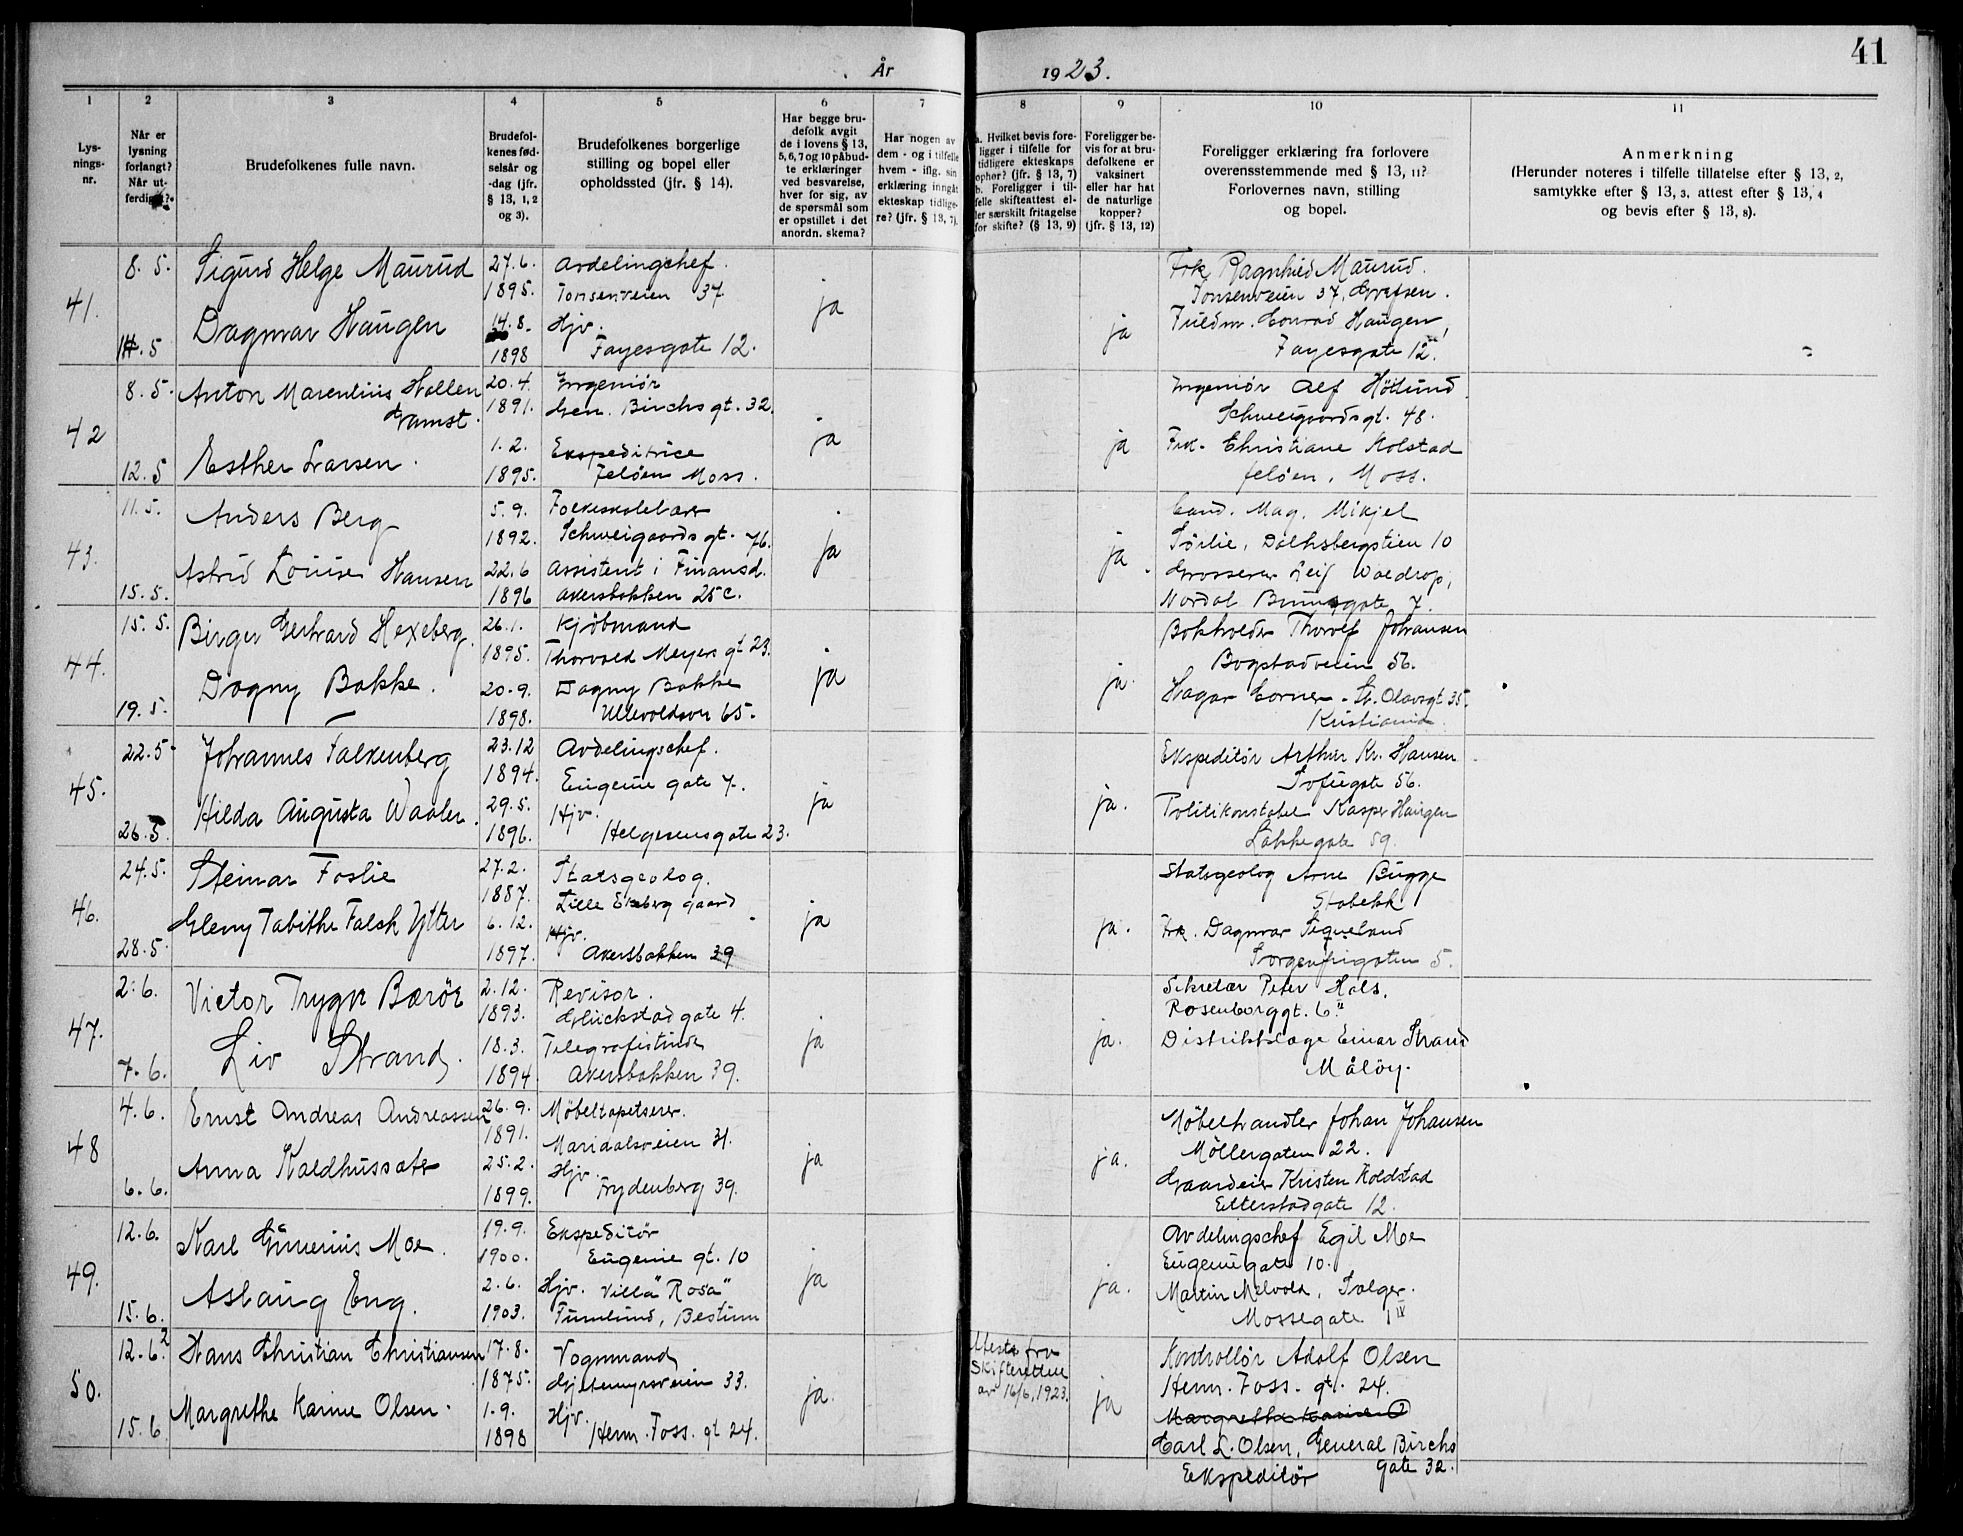 41
År 1923.
1 2 3 4 5 6 7 8 9 10 11
Lys-
nings-
nr.
Når er
lysning
forlangt?
Når ut-
ferdiget?
Brudefolkenes fulle navn.
Brudefol-
kenes fød-
selsår og
-dag (jfr.
§ 13, 1, 2
og 3).
Brudefolkenes borgerlige
stilling og bopel eller
opholdssted (jfr. § 14).
Har begge bru-
defolk avgit
de i lovens § 13,
5, 6, 7 og 10 påbud-
te erklæringer
ved besvarelse,
hver for sig, av
de spørsmål som
er opstillet i det
anordn. skema?
Har nogen av
dem - og i tilfelle
hvem - iflg. sin
erklæring inngåt
ekteskap tidlige-
re? (jfr. § 13, 7).
a. Hvilket bevis fore-
ligger i tilfelle for
tidligere ekteskaps
ophør? (jfr. § 13, 7)
b. Foreligger i til-
felle skifteattest el-
ler særskilt fritagelse
for skifte? (§ 13, 9)
Foreligger be-
vis for at bru-
defolkene er
vaksinert
eller har hat
de naturlige
kopper?
(jfr. § 13, 12)
Foreligger erklæring fra forlovere
overensstemmende med § 13, 11?
Forlovernes navn, stilling
og bopel.
Anmerkning
(Herunder noteres i tilfelle tillatelse efter § 13, 2,
samtykke efter § 13, 3, attest efter § 13, 4
og bevis efter § 13, 8).
41. 8. 5. Sigurd Helge Maurud 27.6. Avdelingchef. Frk Ragnhild Maurud.
1895. Tonsenveien 37 ja Tonsenveien 37, Grefsen.
Dagmar Haugen 14.8. Hjv. ja Fuldm. Conrad Haugen,
.5 1898 Fayesgate 12. Fayesgate 12.
42 8. 5. Anton Marentius Hallen 20.4. Ingeniør Ingeniør Alf Høilund
Gramst. 1891. Gen. Birchs gt. 32. Schweigaardsgt. 48.
1. 2. Ekspeditrice ja ja Frk. Christiane Kolstad
12.5 Esther Larsen. 1895. Jeløen Moss. Jeløen, Moss.
43. 11.5. Anders Berg 5.9. Folkeskolelærer Cand. Mag. Mikjel
1892. Schweigaards gt. 76. ja ja Sørlie, Dalhsbergstien 10
Astrid Louise Hansen 22.6 Assistent i Finansd. Grosserer Leif Waldrop,
15.5. 1896 Akersbakken 25 c. Nordal Brunsgate 7.
44. 15. 5. Birger Gerhard Hexeberg. 26.1. Kjøbmand Bokholder Thorolf Johansen
1895. Thorvald Meyers gt 23. ja Bogstadveien 56.
Dagny Bakke. 20.9. Dagny Bakke ja Hagar Corner - St. Olavsgt 35
19. 5. 1898. Ullevoldsvn 65. Kristiania.
45. 22.5. Johannes Falkenberg 23.12 Avdelingschef. Ekspeditør Arthur Kr. Hansen
1894. Eugenie gate 7. ja ja. Sofiegate 56.
Hilda Augusta Waaler. 29.5. Hjv. Politikonstabel Kasper Haugen
26.5. 1896. Helgesensgate 23. Lakkegate 59.
46. 24.5. Steinar Foslie 27.2. Statsgeolog. Statsgeolog Arne Bugge
1887. Lille Ekeberg gaard Stabekk
Gleny Tabithe Falsk Ytter 6.12. Hjv. ja ja. Frk. Dagmar
28.5. 1897. Akersbakken 39 Sorgenfrigaten 5.
47. 2.6. Victor Trygve Bærøe 2.12. Revisor. Sekretær Peter Hals.
1893. Glückstad gate 4. ja Rosenborggt. 6 II
Liv Strand. 18.3. Telegrafistinde ja. Distriktslæge Einar Strand
7.6. 1894 Akersbakken 39. Måløy.
48 4.6. Ernst Andreas Andreassen 26.9. Møbeltapetserer. Møbelhandler Johan Johansen
1891. Maridalsveien 31. ja ja. Møllergaten 22.
Anna Kaldhussæter 25.2. Hjv. Gaardeier Kristen Koldstad
6.6. 1899. Frydenberg 39. Etterstadgate 12.
49. 12.6. Karl Gunerius Moe. 19.9. Ekspeditør Avdelingschef Egil Moe
1900. Eugenie gt. 10 ja ja. Eugeniegate 10.
Aslaug Eng. 2.6. Hjv. Villa "Rosa" Martin Melvold, Sælger.
15.6. 1903. Furulund, Bestum Mossegate 1 IV
50. 12.6. Hans Christian Christiansen 17.8. Vognmand Attest fra Kontrollør Adolf Olsen
1875. Gjetemyrsveien 33. Skifteretten Herm. Foss. gt. 24.
Margrethe Karine Olsen. 1.9. Hjv. ja. av 16/6, 1923. ja Margrethe Karine O
15.6. 1898 Herm. Foss. gt 24. Carl L. Olsen, General Birchs
Ekspeditør gate 32.